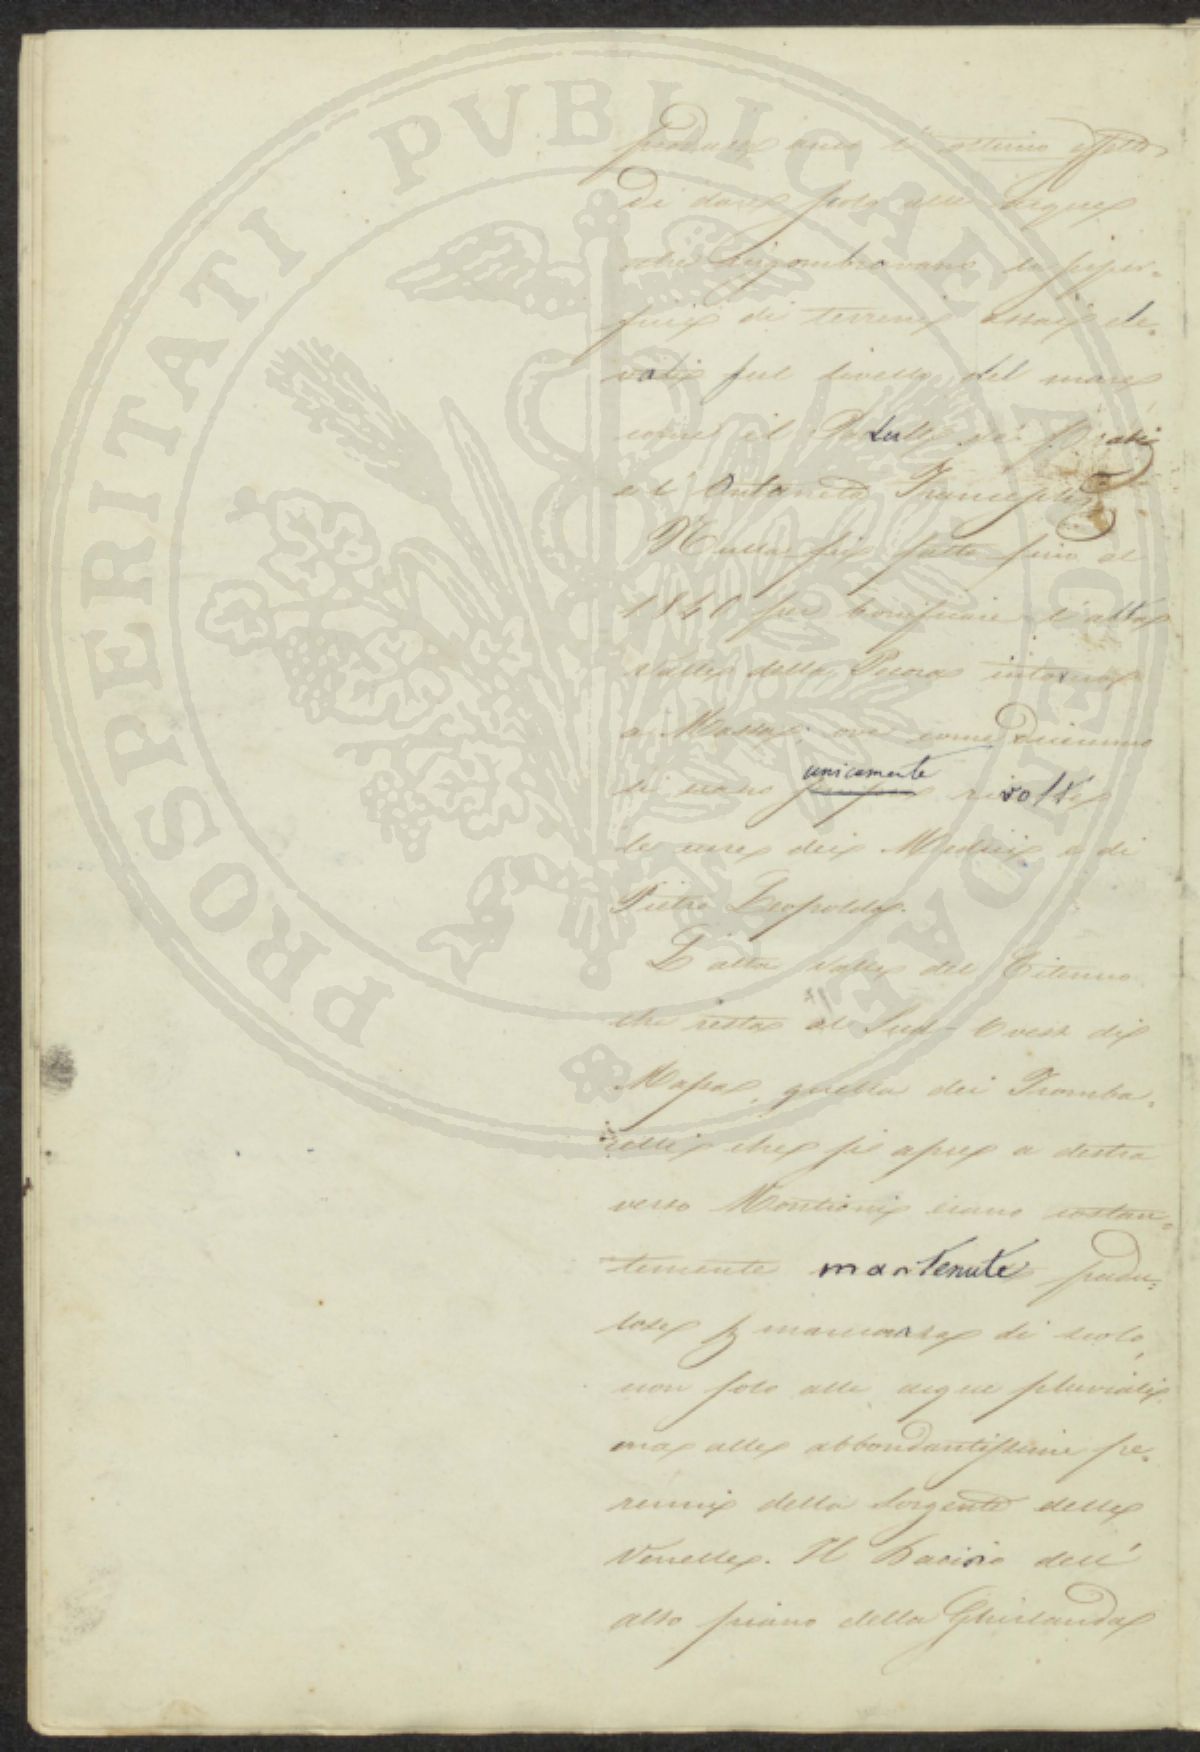 produrre anco l'ottimo effetto
di dare scolo alle acque
che ingombravano la super-
ficie di terreni assai ele-
vati sul livello del mare
come il Padule de' Prati
e l'Ontaneta
Nulla si fatto fino al
1840 per bonificare l'alta
Valle della Pecora intorno
a Massa, ove come dicemmo
si erano unicamente rivolte
le cure dei Medici e di
Pietro Leopoldo.
L'alta valle del
che resta al Sud-Ovest di
Massa, quella dei Tromba-
che si apre a destra
verso Montioni erano costan-
temente mantenute padu-
lose p mancanza di scolo,
non solo alle acque pluviali
ma alle abbondantissime pe-
renni della Sorgente delle
Venelle. Il bacino dell'
alto piano della Ghirlanda
PROSPERITATI PVBLICAE AVGENDAE